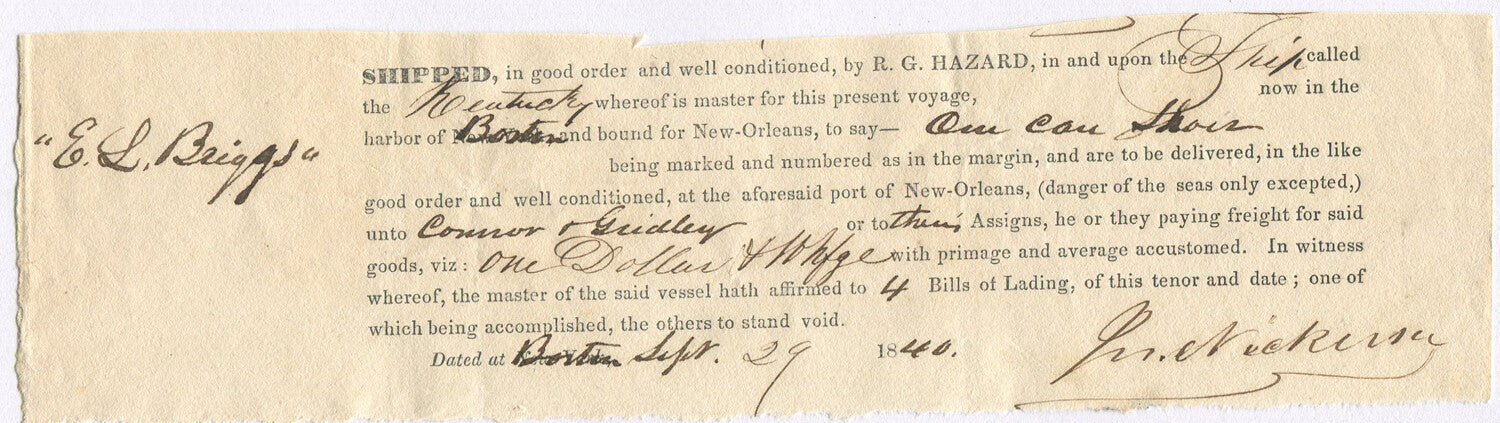 SHIPPED, in good order and well conditioned, by R. G. HAZARD, in and upon the Ship called
the Kentucky whereof is master for this present voyage, now in the
harbor of Boston and bound for New-Orleans, to say— One Case Shoes
"E. L. Briggs"
being marked and numbered as in the margin, and are to be delivered, in the like
good order and well conditioned, at the aforesaid port of New-Orleans, (danger of the seas only excepted,)
unto Connor & Gridley or to their Assigns, he or they paying freight for said
goods, viz: One Dollar & Whfge with primage and average accustomed. In witness
whereof, the master of the said vessel hath affirmed to 4 Bills of Lading, of this tenor and date; one of
which being accomplished, the others to stand void.
Dated at Boston Sept. 29 1840.
Nickerson